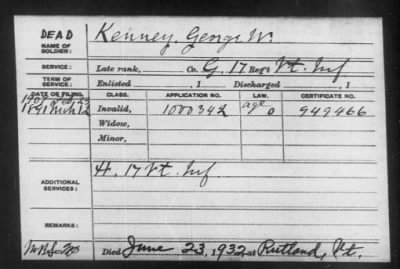 DEAD
NAME OF SOLDIER: Kenney, George W.
SERVICE: Late rank, Co. G, 17 Reg't Vt. Inf
TERM OF SERVICE: Enlisted , 1 Discharged , 1
DATE OF FILING. CLASS. APPLICATION NO. LAW. CERTIFICATE NO.
1907 Feb 23 age
1891 Mch 12 Invalid, 1000342 949466
Widow,
Minor,
ADDITIONAL SERVICES: H. 17 Vt. Inf
REMARKS:
Died June 23, 1932, at Rutland, Vt.